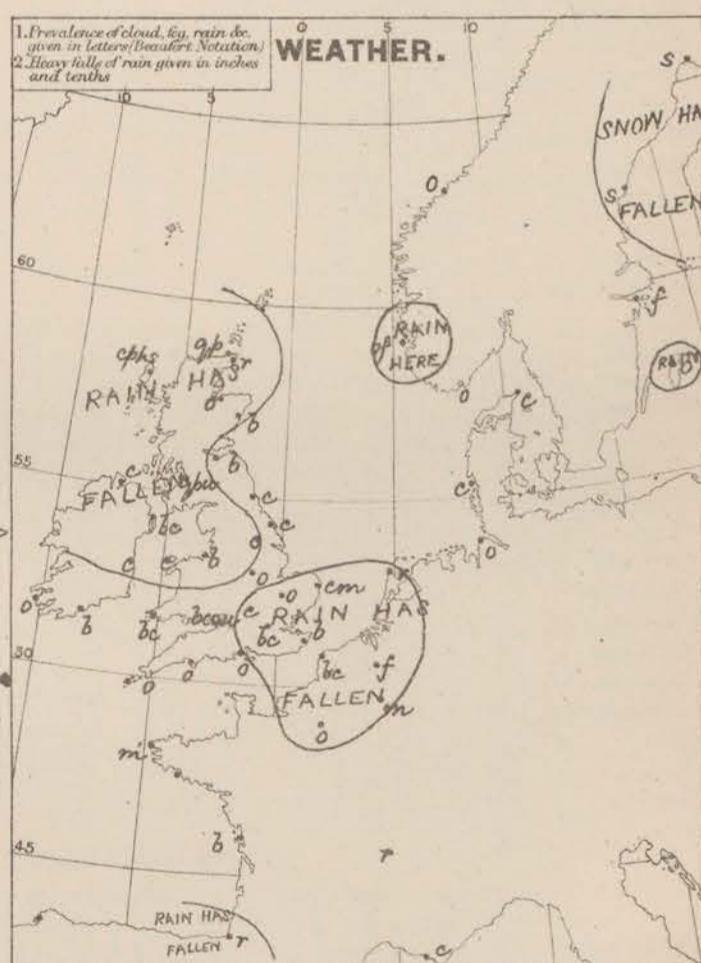 1. Prevalence of cloud, fog, rain &c.
given in letters (Beaufort Notation)
2. Heavy falls of rain given in inches
and tenths
WEATHER.
10 5 0 5 10
s
SNOW HA
s
FALLEN
o
60
f
RAIN
HERE
cphs
qp
r
RAIN
HAS
o
b
o
c
55
b
c
FALLEN
c
c
bc
c
c
c
b
o
o
o
cm
r
o
b
bc
c
RAIN HAS
bc
b
50
o
o
o
bc
f
FALLEN
n
o
m
b
45
r
RAIN HAS
FALLEN
r
c